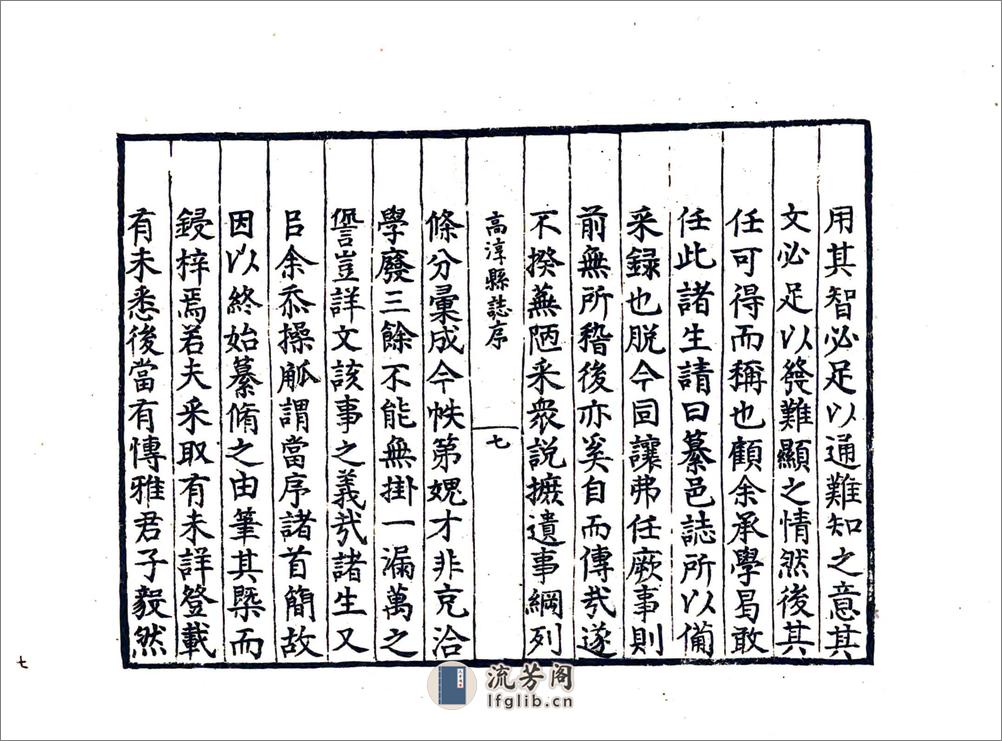 用其智必足以通難知之意其
文必足以發難顯之情然後其
任可得而稱也顧余承學曷敢
任此諸生請曰纂邑誌所以備
采録也脫今固讓弗任厥事則
前無所稽後亦奚自而傳哉遂
不揆蕪陋采衆說摭遺事綱列
高淳縣誌序
七
條分彙成今帙第媿才非充洽
學廢三餘不能無掛一漏萬之
諐豈詳文該事之義哉諸生又
㠯余忝操觚謂當序諸首簡故
因以終始纂脩之由筆其槩而
鋟梓焉若夫采取有未詳登載
有未悉後當有愽雅君子毅然
七
流芳阁
lfglib.cn